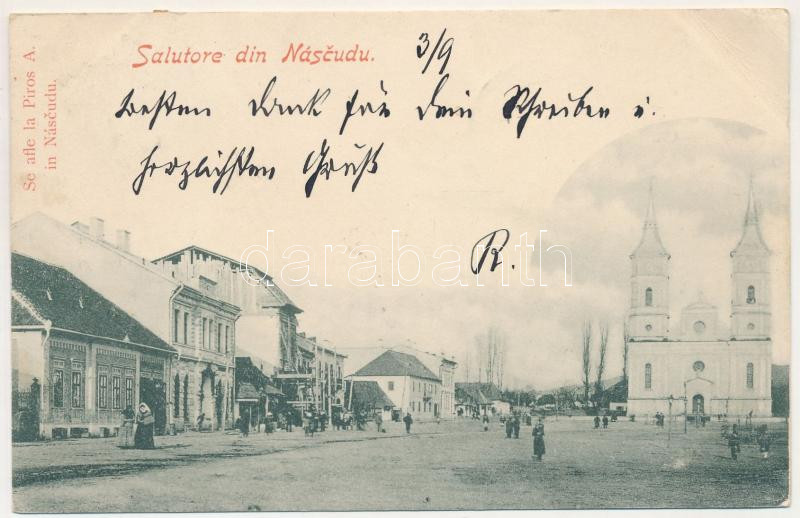 Salutore din Násčudu.
3/9
besten Dank für Dein Schreiben u.
herzlichsten Gruß
R.
Se afle la Piros A.
in Násčudu.
darabanth